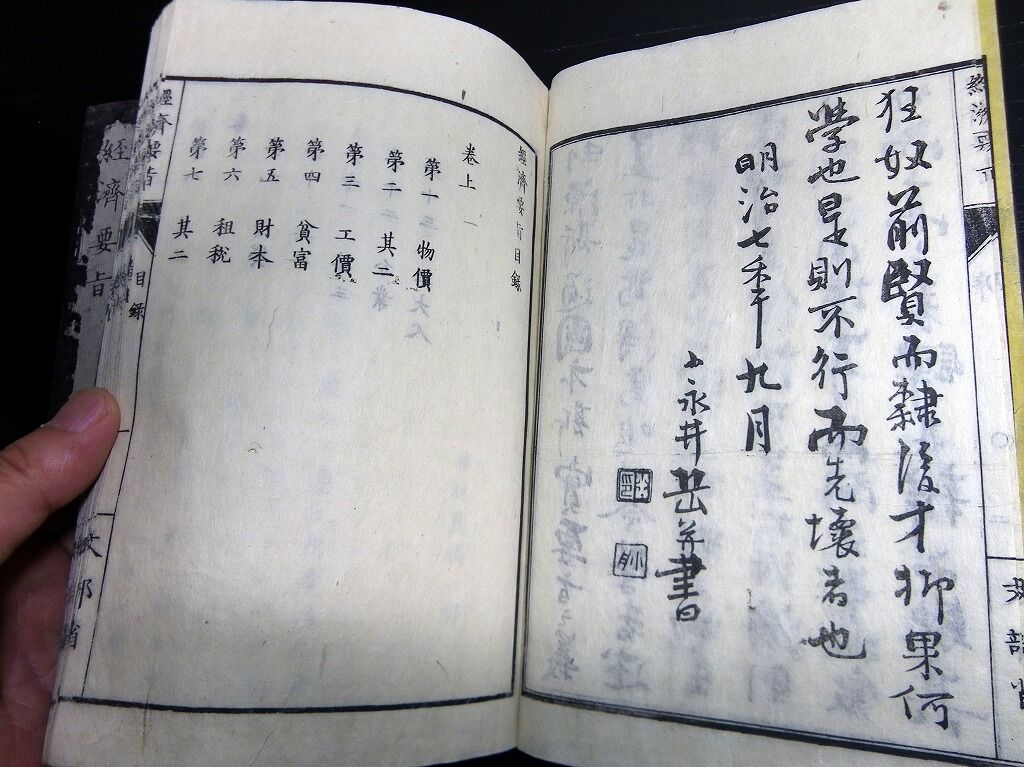 狂奴前賢而隸後才抑果何
學也是則不行而先壞者也
明治七季九月
永井
書
經濟要旨目録
卷上
第一 物價
第二 其二
第三 工價
第四 貧富
第五 財本
第六 租税
第七 其二
經濟要旨
目録
文部省
經濟要旨